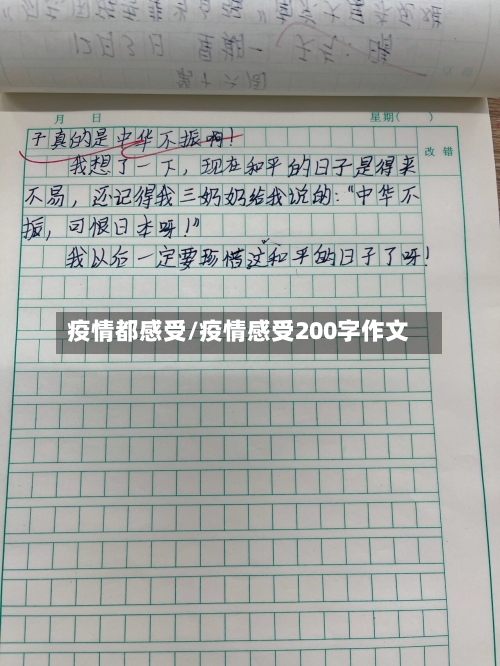 月 日 星期( )
改错
子真的是中华不振啊!
我想了一下,现在和平的日子是得来
不易,还记得我三奶奶给我说的:“中华不
振,可恨日本呀!”
我以后一定要珍惜这和平的日子了呀!
疫情都感受/疫情感受200字作文